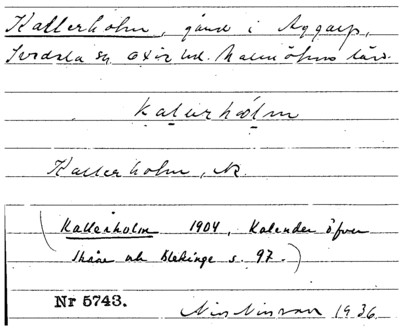 Kallerholm, gård i Aggarp,
Svedala sn, Oxie hd. Malmöhus län.
kalerhòlm
Kallerholm, Nr.
(Kallerholm 1904, Kalender öfver
Skåne och Blekinge s. 97.)
Nr 5743.
Nils Nilsson 1936.